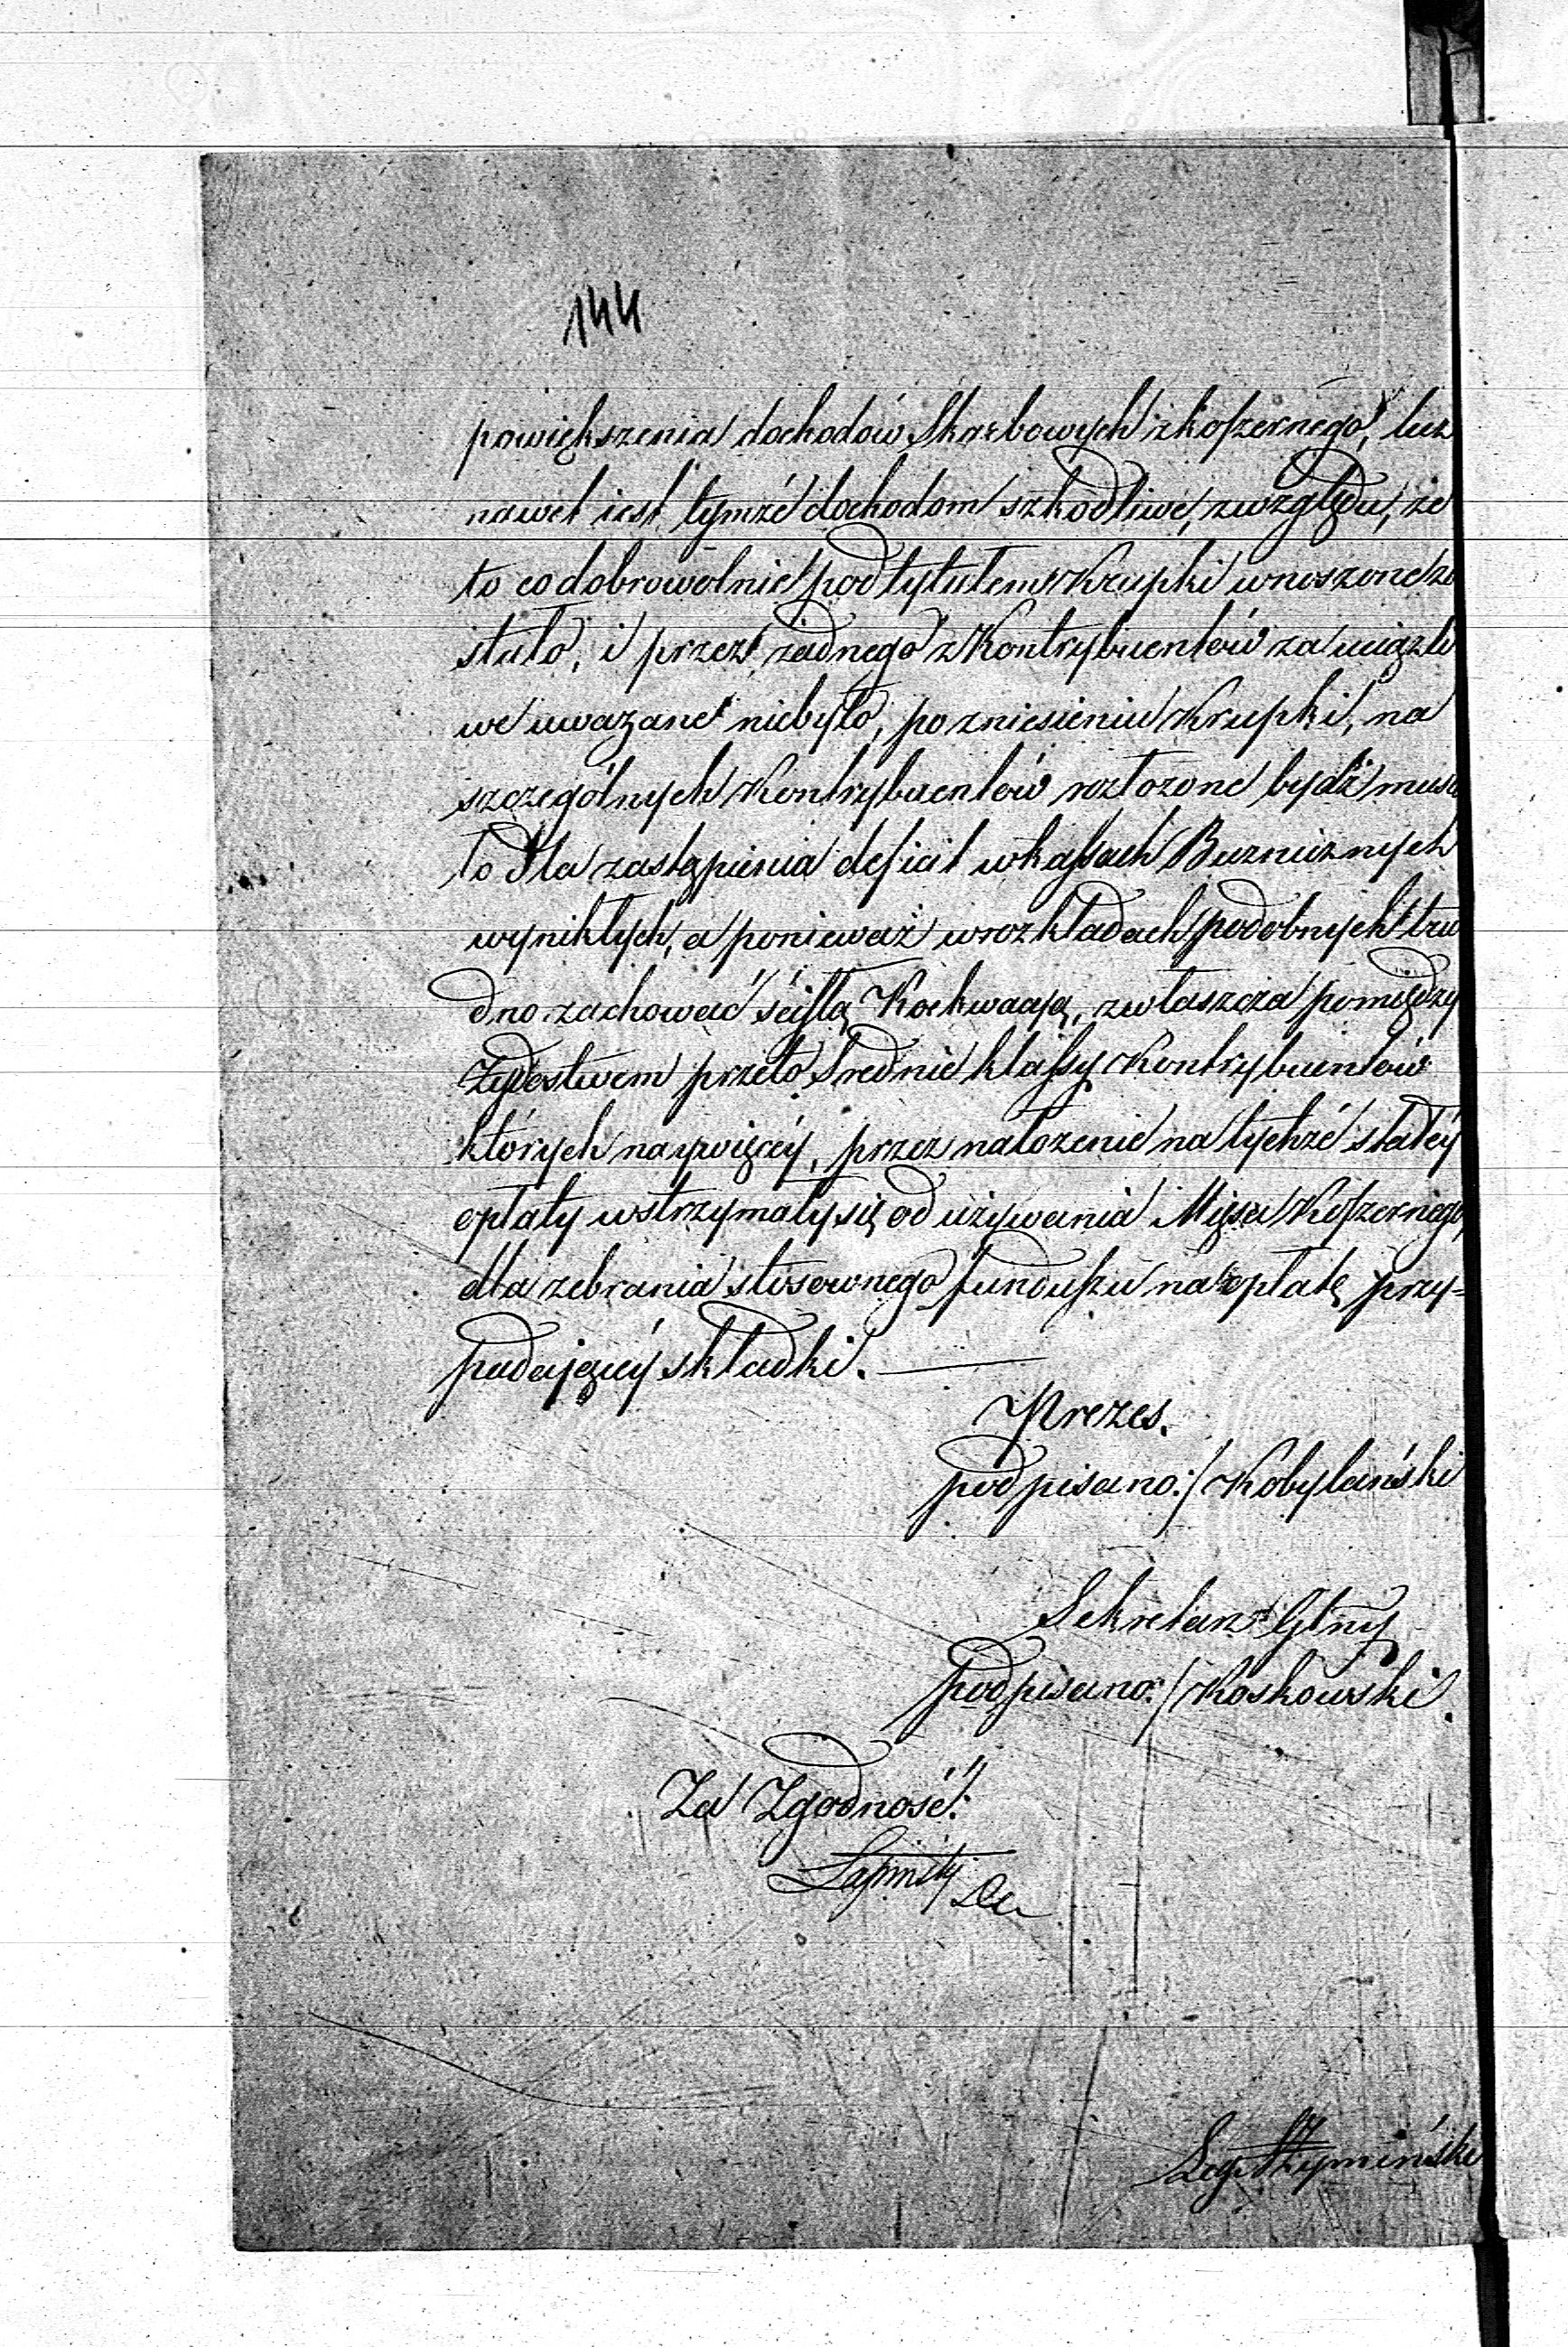 144
powiększenia dochodów Skarbowych z koszernego, lecz
nawet iest tymże dochodom szkodliwe, zwzględu, że
to co dobrowolnie pod tytułem Krupki wnoszone zo
stało, i przez żadnego z Kontrybuentów za uciążli
we uważane niebyło, po zniesieniu Krupki, na
szczególnych Kontrybuentów rozłożone bydź musia
ło dla zastąpienia deficit wkassach Bużnicznych
wynikłych, a ponieważ wrozkładach podobnych tru
dno zachować ścisłą Koekwacyą, zwłaszcza pomiędzy
Żydostwem przeto Srednie klassy Kontrybuentów
których naywięcéy, przez nałożenie na tychże stałéy
opłaty wstrzymały się od używania Mięsa Koszernego,
dla zebrania stosownego funduszu na opłatę przy=
padaiącéy składki. —
Prezes.
podpisano:/ Kobylański
Sekretarz Głny
podpisano:/ Koskowski.
Za Zgodność: